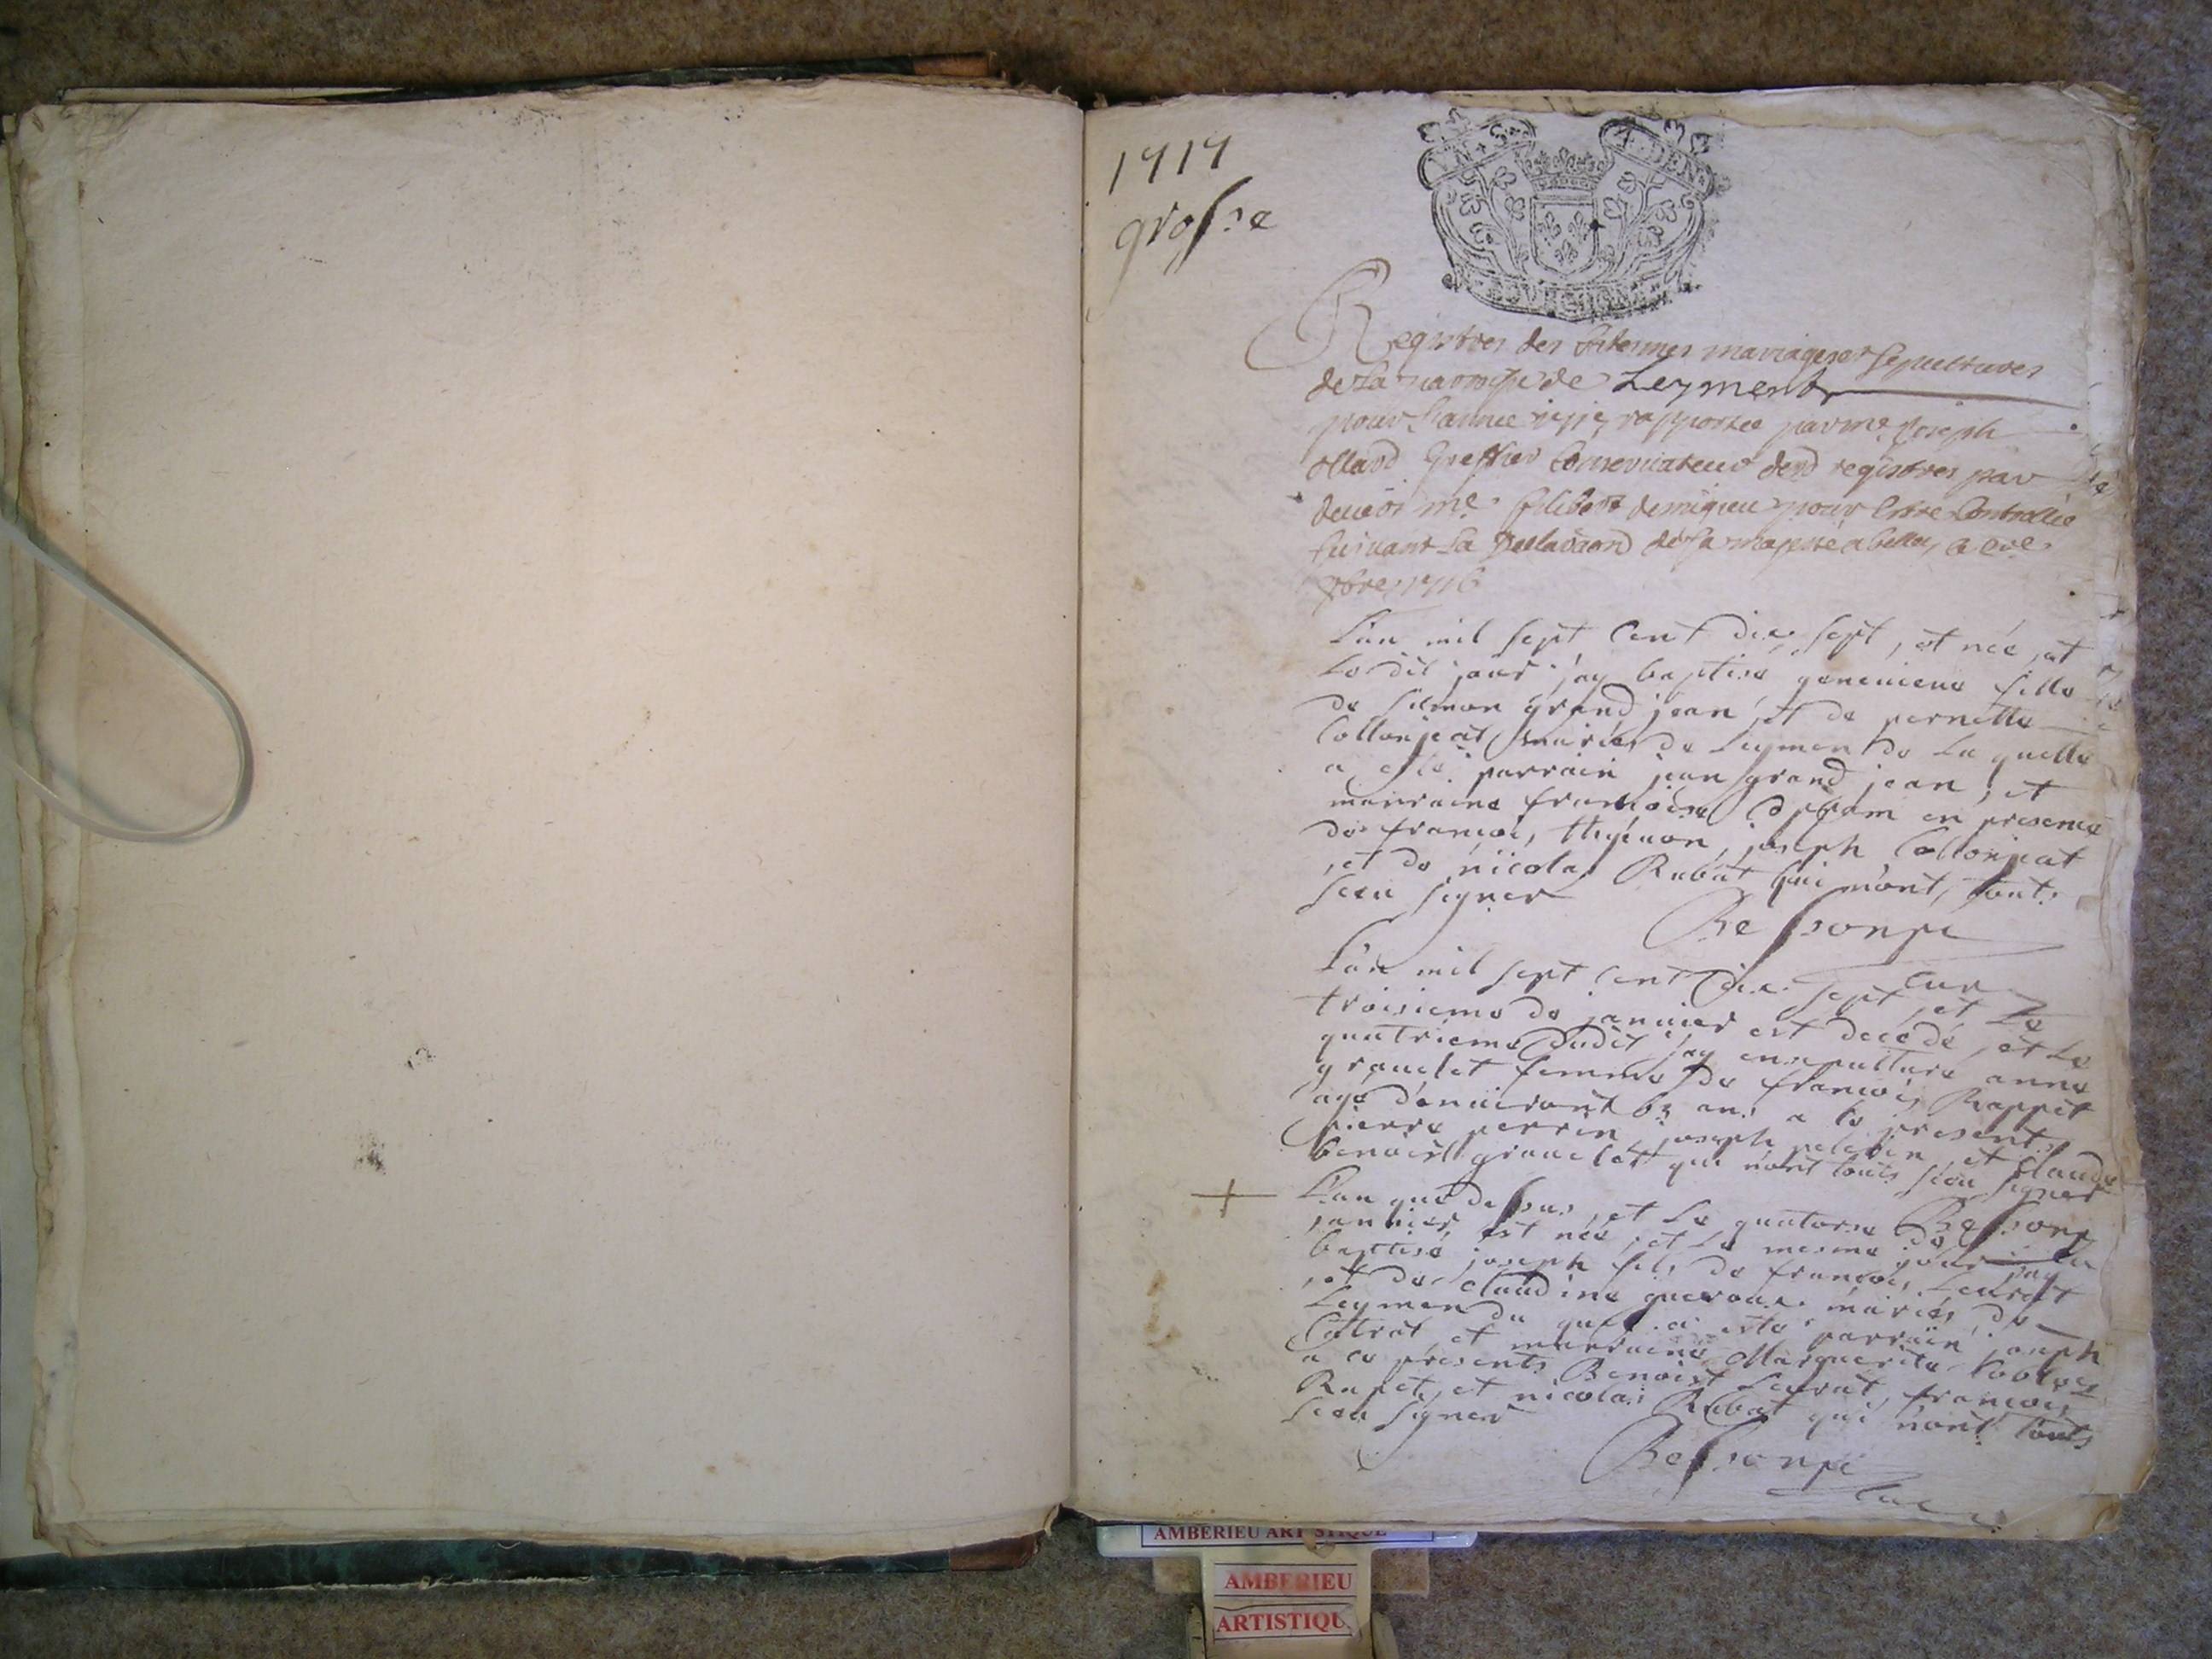 1717
grosse
GEN
DEN
BOURGOGNE
Registres des Batesmes mariages et sepultures
de la parroisse de Leyment
pour l'annee 1717 rapportée par me Joseph
ollard Greffier Conservateur desd registres par
devant me filibert demigieu pour Estre Controllée
suivant la Declaraon de sa majesté a belley le
xbre 1716
L'an mil sept cent dix sept, est née, et
le dit jour j'ay baptisé genevieve fille
de simon grand jean, et de pernette
Collonjeat mariés de Leyment de la quelle
a esté parrain jean grand jean, et
marraine francoise en presence
de francois, joseph Collonjeat
et de nicolas Rubat qui n'ont, touts
sceu signer
Bessonpi
cur
L'an mil sept cent dix sept, et le
troisieme de janvier est decedé, et le
quatrieme dudit j'ay ensepulturé anne
gravelet femme de francois Rappet
agé d'environt 63 ans a ce presents
pierre perrin joseph pelerin, et claude
benoist gravelet qui n'ont touts sceu signer
L'an que dessus, et le quatorse de Bessonpi
janvier est née, et le mesme jour j'ay
baptisé joseph fils de francois Leurat
et de claudine gueroux mariés de
Leyment du quel a esté parrain joseph
et marraine Marguerite
a ce presents Benoist Leurat, francois
Rapet, et nicolas Rubat qui n'ont touts
sceu signer
Bessonpi
cur
AMBERIEU ARTISTIQUE
AMBERIEU
ARTISTIQU